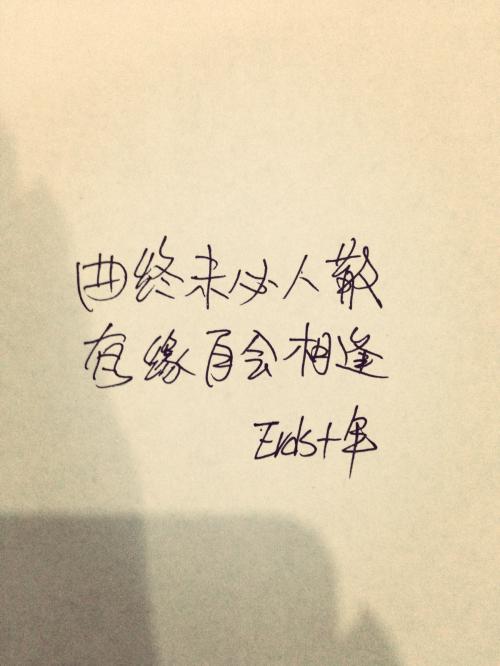 曲终未必人散
有缘自会相逢
Ends十年